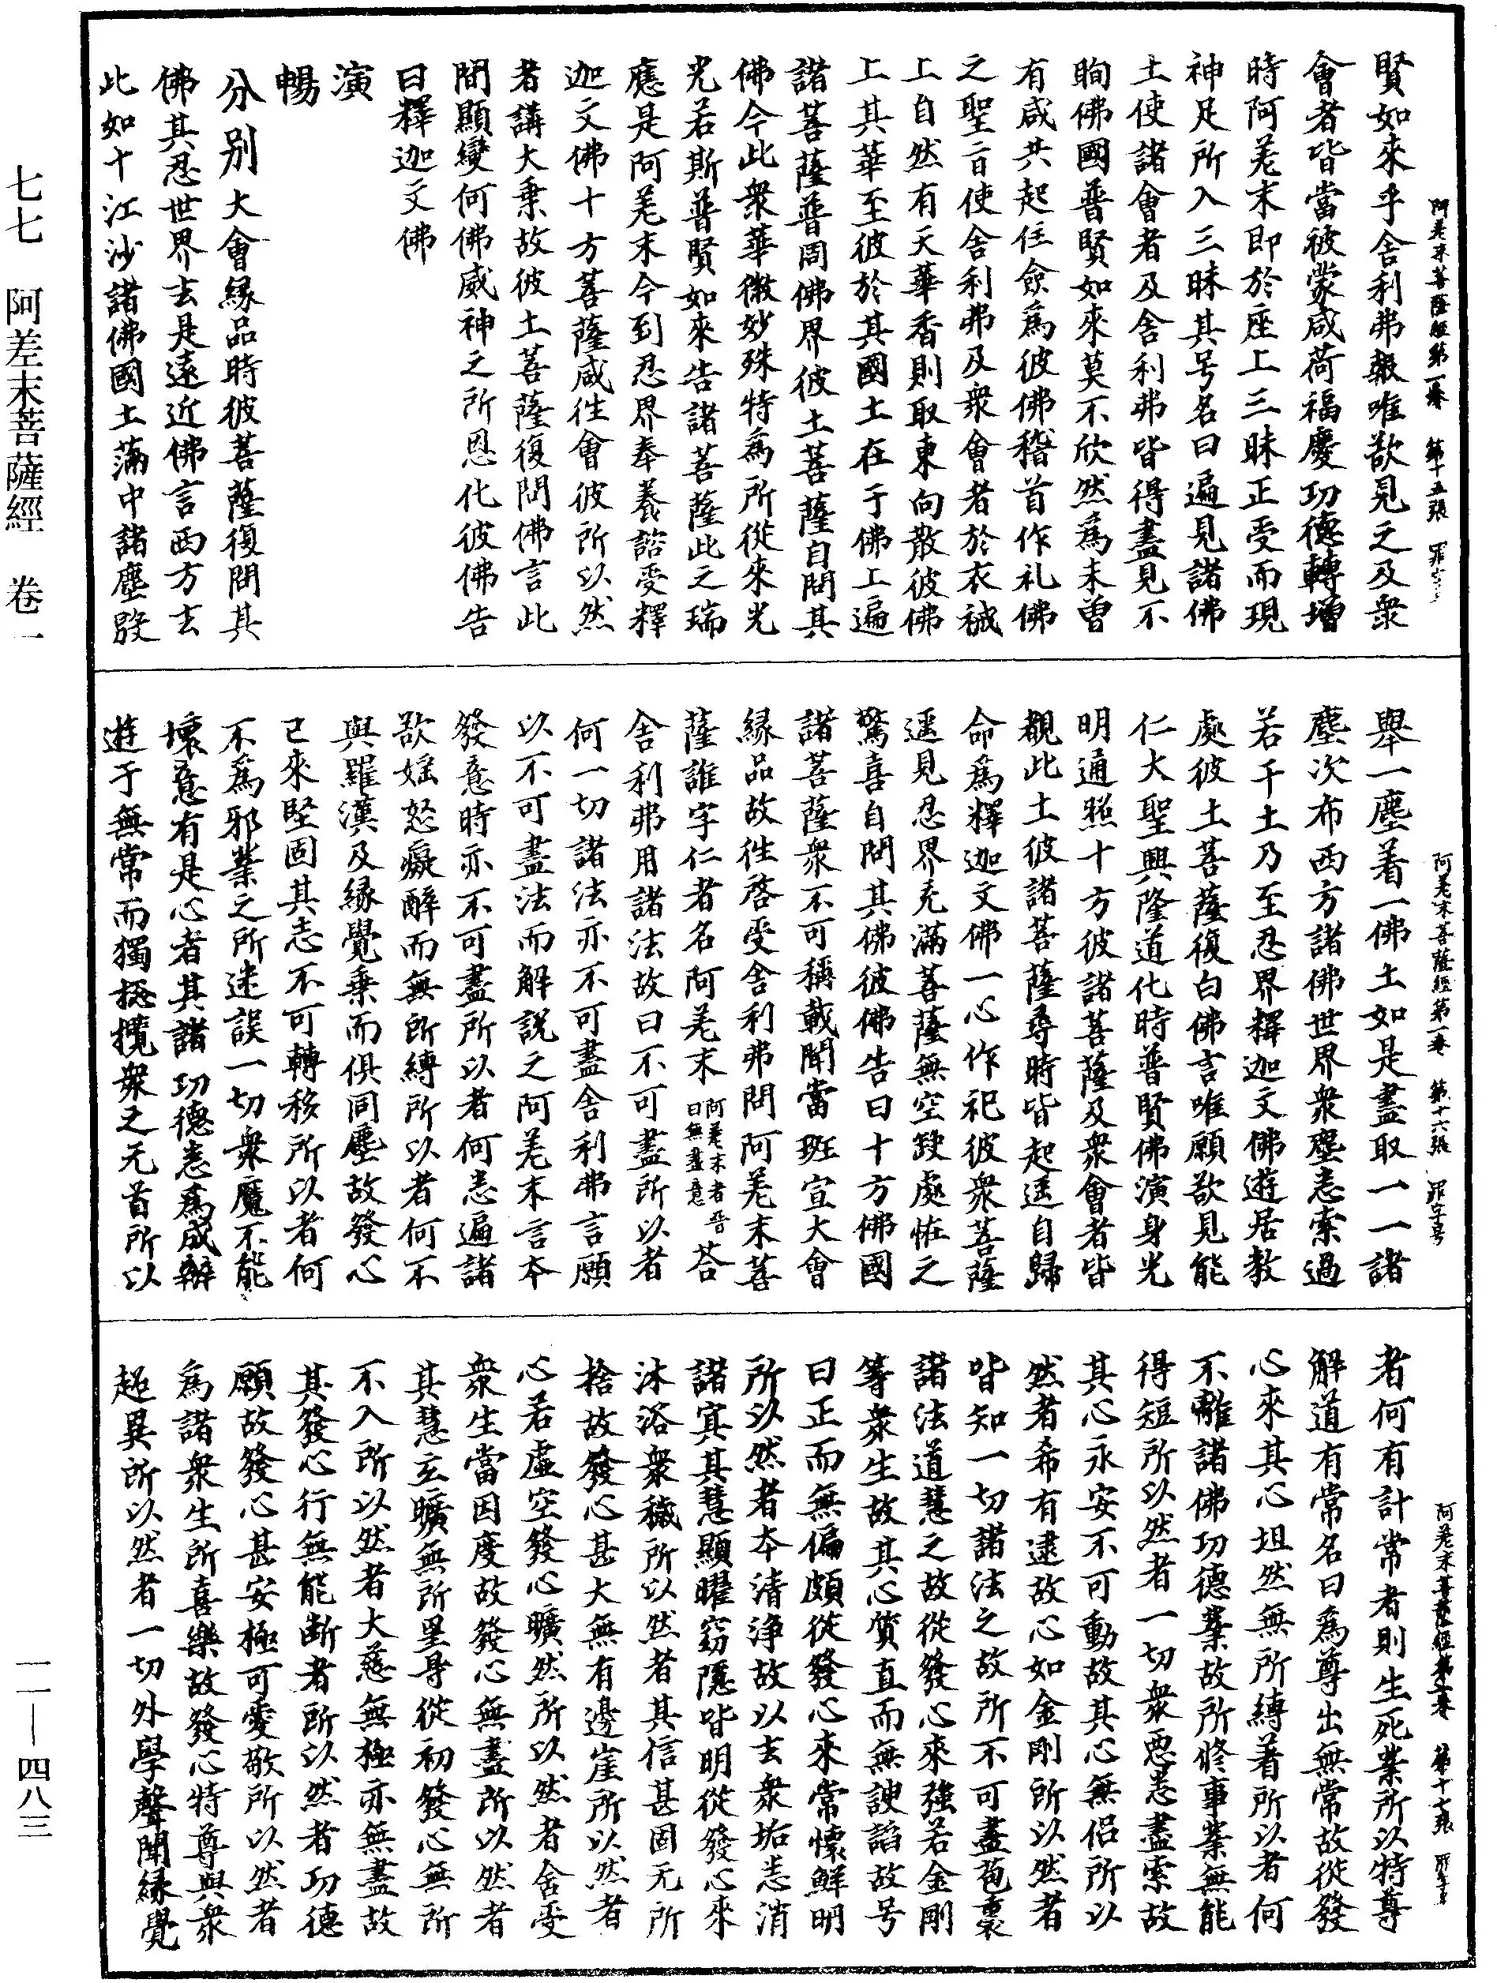 阿差末菩薩經第一卷　第十五張　罪字号
賢如來乎舍利弗報唯欲見之及衆
會者皆當彼蒙咸荷福慶功德轉增
時阿差末即於座上三昧正受而現
神足所入三昧其号名曰遍見諸佛
土使諸會者及舍利弗皆得盡見不
眴佛國普賢如來莫不欣然爲未曽
有咸共起住僉爲彼佛稽首作礼佛
之聖旨使舍利弗及衆會者於衣裓
上自然有天華香則取東向散彼佛
上其華至彼於其國土在于佛上遍
諸菩薩普周佛界彼土菩薩自問其
佛今此衆華微妙殊特爲所從來光
光若斯普賢如來告諸菩薩此之瑞
應是阿差末今到忍界奉養諮受釋
迦文佛十方菩薩咸往會彼所以然
者講大乗故彼土菩薩復問佛言此
間顯變何佛威神之所恩化彼佛告
曰釋迦文佛
演
暢
分别大會縁品時彼菩薩復問其
佛其忍世界去是遠近佛言西方去
此如十江沙諸佛國土滿中諸塵取
阿差末菩薩經第一卷　第十六張　罪字号
舉一塵着一佛土如是盡取一一諸
塵次布西方諸佛世界衆塵悉索過
若干土乃至忍界釋迦文佛遊居教
處彼土菩薩復白佛言唯願欲見能
仁大聖興隆道化時普賢佛演身光
明通照十方彼諸菩薩及衆會者皆
覩此土彼諸菩薩尋時皆起遥自歸
命爲釋迦文佛一心作礼彼衆菩薩
遥見忍界充滿菩薩無空缺處恠之
驚喜自問其佛彼佛告曰十方佛國
諸菩薩衆不可稱載聞當班宣大會
縁品故往啓受舍利弗問阿差末菩
薩誰字仁者名阿差末阿差末者晉曰無盡意荅
舍利弗用諸法故曰不可盡所以者
何一切諸法亦不可盡舍利弗言願
以不可盡法而解説之阿差末言夲
發意時亦不可盡所以者何悉遍諸
欲婬怒癡醉而無所縛所以者何不
與羅漢及縁覺乗而俱同塵故發心
已來堅固其志不可轉移所以者何
不爲邪業之所迷誤一切衆魔不能
壞意有是心者其諸功德悉爲成辦
遊于無常而獨㧾攬衆之元首所以
阿差末菩薩經第一卷　第十七張　罪字号
者何有計常者則生死業所以特尊
解道有常名曰爲尊出無常故從發
心來其心坦然無所縛著所以者何
不離諸佛功德業故所修事業無能
得短所以然者一切衆惡悉盡索故
其心永安不可動故其心無侣所以
然者希有逮故心如金剛所以然者
皆知一切諸法之故所不可盡苞裹
諸法道慧之故從發心來強若金剛
等衆生故其心質直而無諛謟故号
曰正而無偏頗從發心來常懷鮮明
所以然者夲清浄故以去衆垢悉消
諸冥其慧顯曜窈隱皆明從發心來
沐浴衆穢所以然者其信甚固无所
捨故發心甚大無有邊崖所以然者
心若虚空發心曠然所以然者舍受
衆生當因度故發心無盡所以然者
其慧玄曠無所罣㝵從初發心無所
不入所以然者大慈無極亦無盡故
其發心行無能断者所以然者功德
願故發心甚安極可愛敬所以然者
爲諸衆生所喜樂故發心特尊與衆
超異所以然者一切外學聲聞縁覺
七七　阿差末菩薩經　卷一
一一—四八三